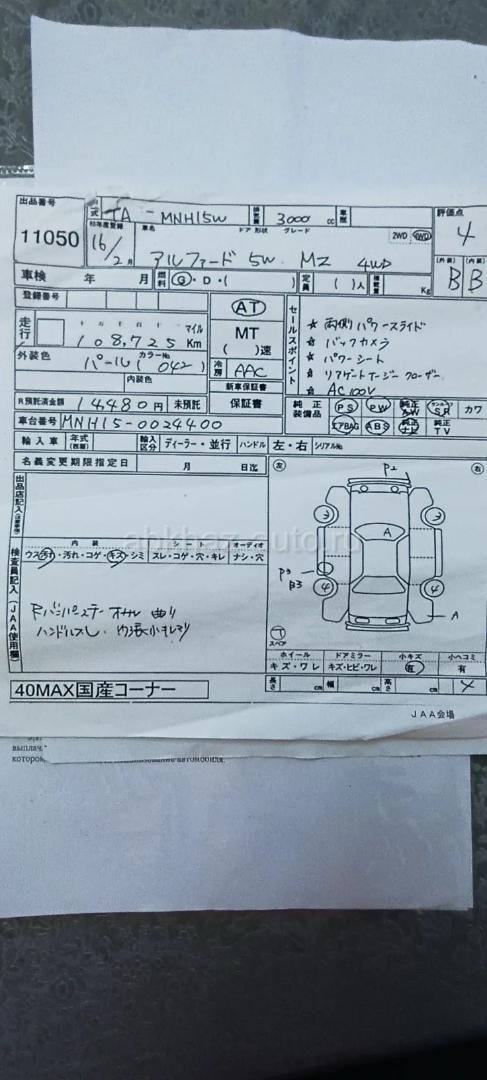 出品番号
11050
式 TA - MNH15W 排気量 3000 cc 車歴
初年度登録 16/2月 車名 ドア 形状 グレード 2WD 4WD
アルファード 5W MZ 4WD
評価点
4
(外装) (内装)
B B
車検 年 月 燃料 G・D・( ) 定員 ( )人 積載量 Kg
登録番号
走行 108,725 マイル Km
外装色 パール カラーNo (042)
内装色
AT
MT
( )速
冷房 AAC
新車保証書
保証書
セールスポイント
★ 両側パワースライド
★ バックカメラ
★ パワーシート
★ リアゲートイージークローザー
★ AC100V
R預託済金額 14,480円 未預託
車台番号 MNH15-0024400
純正装備品 PS PW 純正AW サンルーフSR カワ
エアBAG ABS 純正ナビ 純正TV
輸入車 年式 輸入区分 ディーラー・並行 ハンドル 左・右 シリアル№
名義変更期限指定日 月 日迄
出品店記入
検査員記入(JAA使用欄)
内装 シート オーディオ
ウス汚れ・汚れ・コゲ・キズ・シミ スレ・コゲ・穴・キレ ナシ・穴
ハンドルスレ 内張小キレ
左
右
P2
3
3
A
P3
B3
4
4
A
スペア
ホイール ドアミラー 小キズ 小ヘコミ
キズ・ワレ キズ・ヒビ・ワレ 有 有
長さ cm 幅 cm 高さ cm 4
40MAX国産コーナー
JAA会場
abkhaz-auto.ru
выплач
которо
автомобиля.